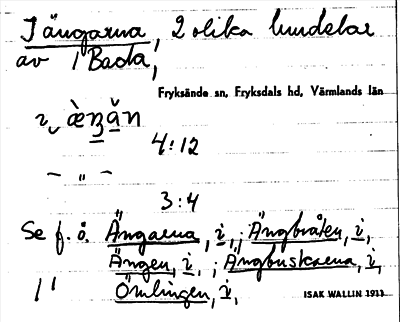 I ängarna, 2 olika hundelar
av 1 Bada,
Fryksände sn, Fryksdals hd, Värmlands län
4:12
– " –
3:4
Se f. ö. Ängarna, i, ; Ängbråten, i,
Ängen, i, ; Ängbuskarna, i,
Ömlingen, i,
ISAK WALLIN 1933